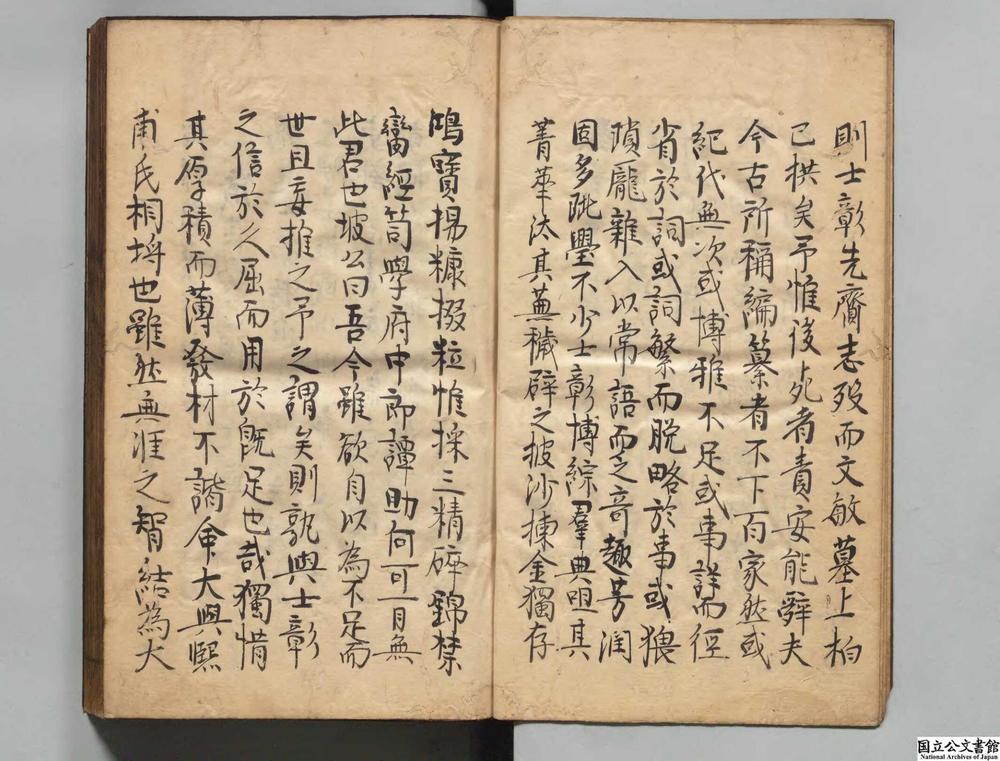 則士彰先齎志歿而文敏墓上柏
已拱矣予惟後死者責安能辭夫
今古所稱編纂者不下百家然或
紀代無次或博雅不足或事詳而徑
省於詞或詞繁而脫略於事或猥
瑣龐雜入以常語而乏奇趣芳潤
固多疵舋不少士彰博綜羣典咀其
菁華汰其蕪穢辟之披沙揀金獨存
鴻寶揚糠掇粒惟採三精碎錦
臠經笥學府中郎譚助何可一日無
此君也坡公曰吾今雖欲自以為不足而
世且妄推之予之謂矣則孰與士彰
之信於久屈而用於既足也哉獨惜
其厚積而薄發材不諧命大與熙
甫氏相埒也雖然無涯之智結為大
国立公文書館
National Archives of Japan